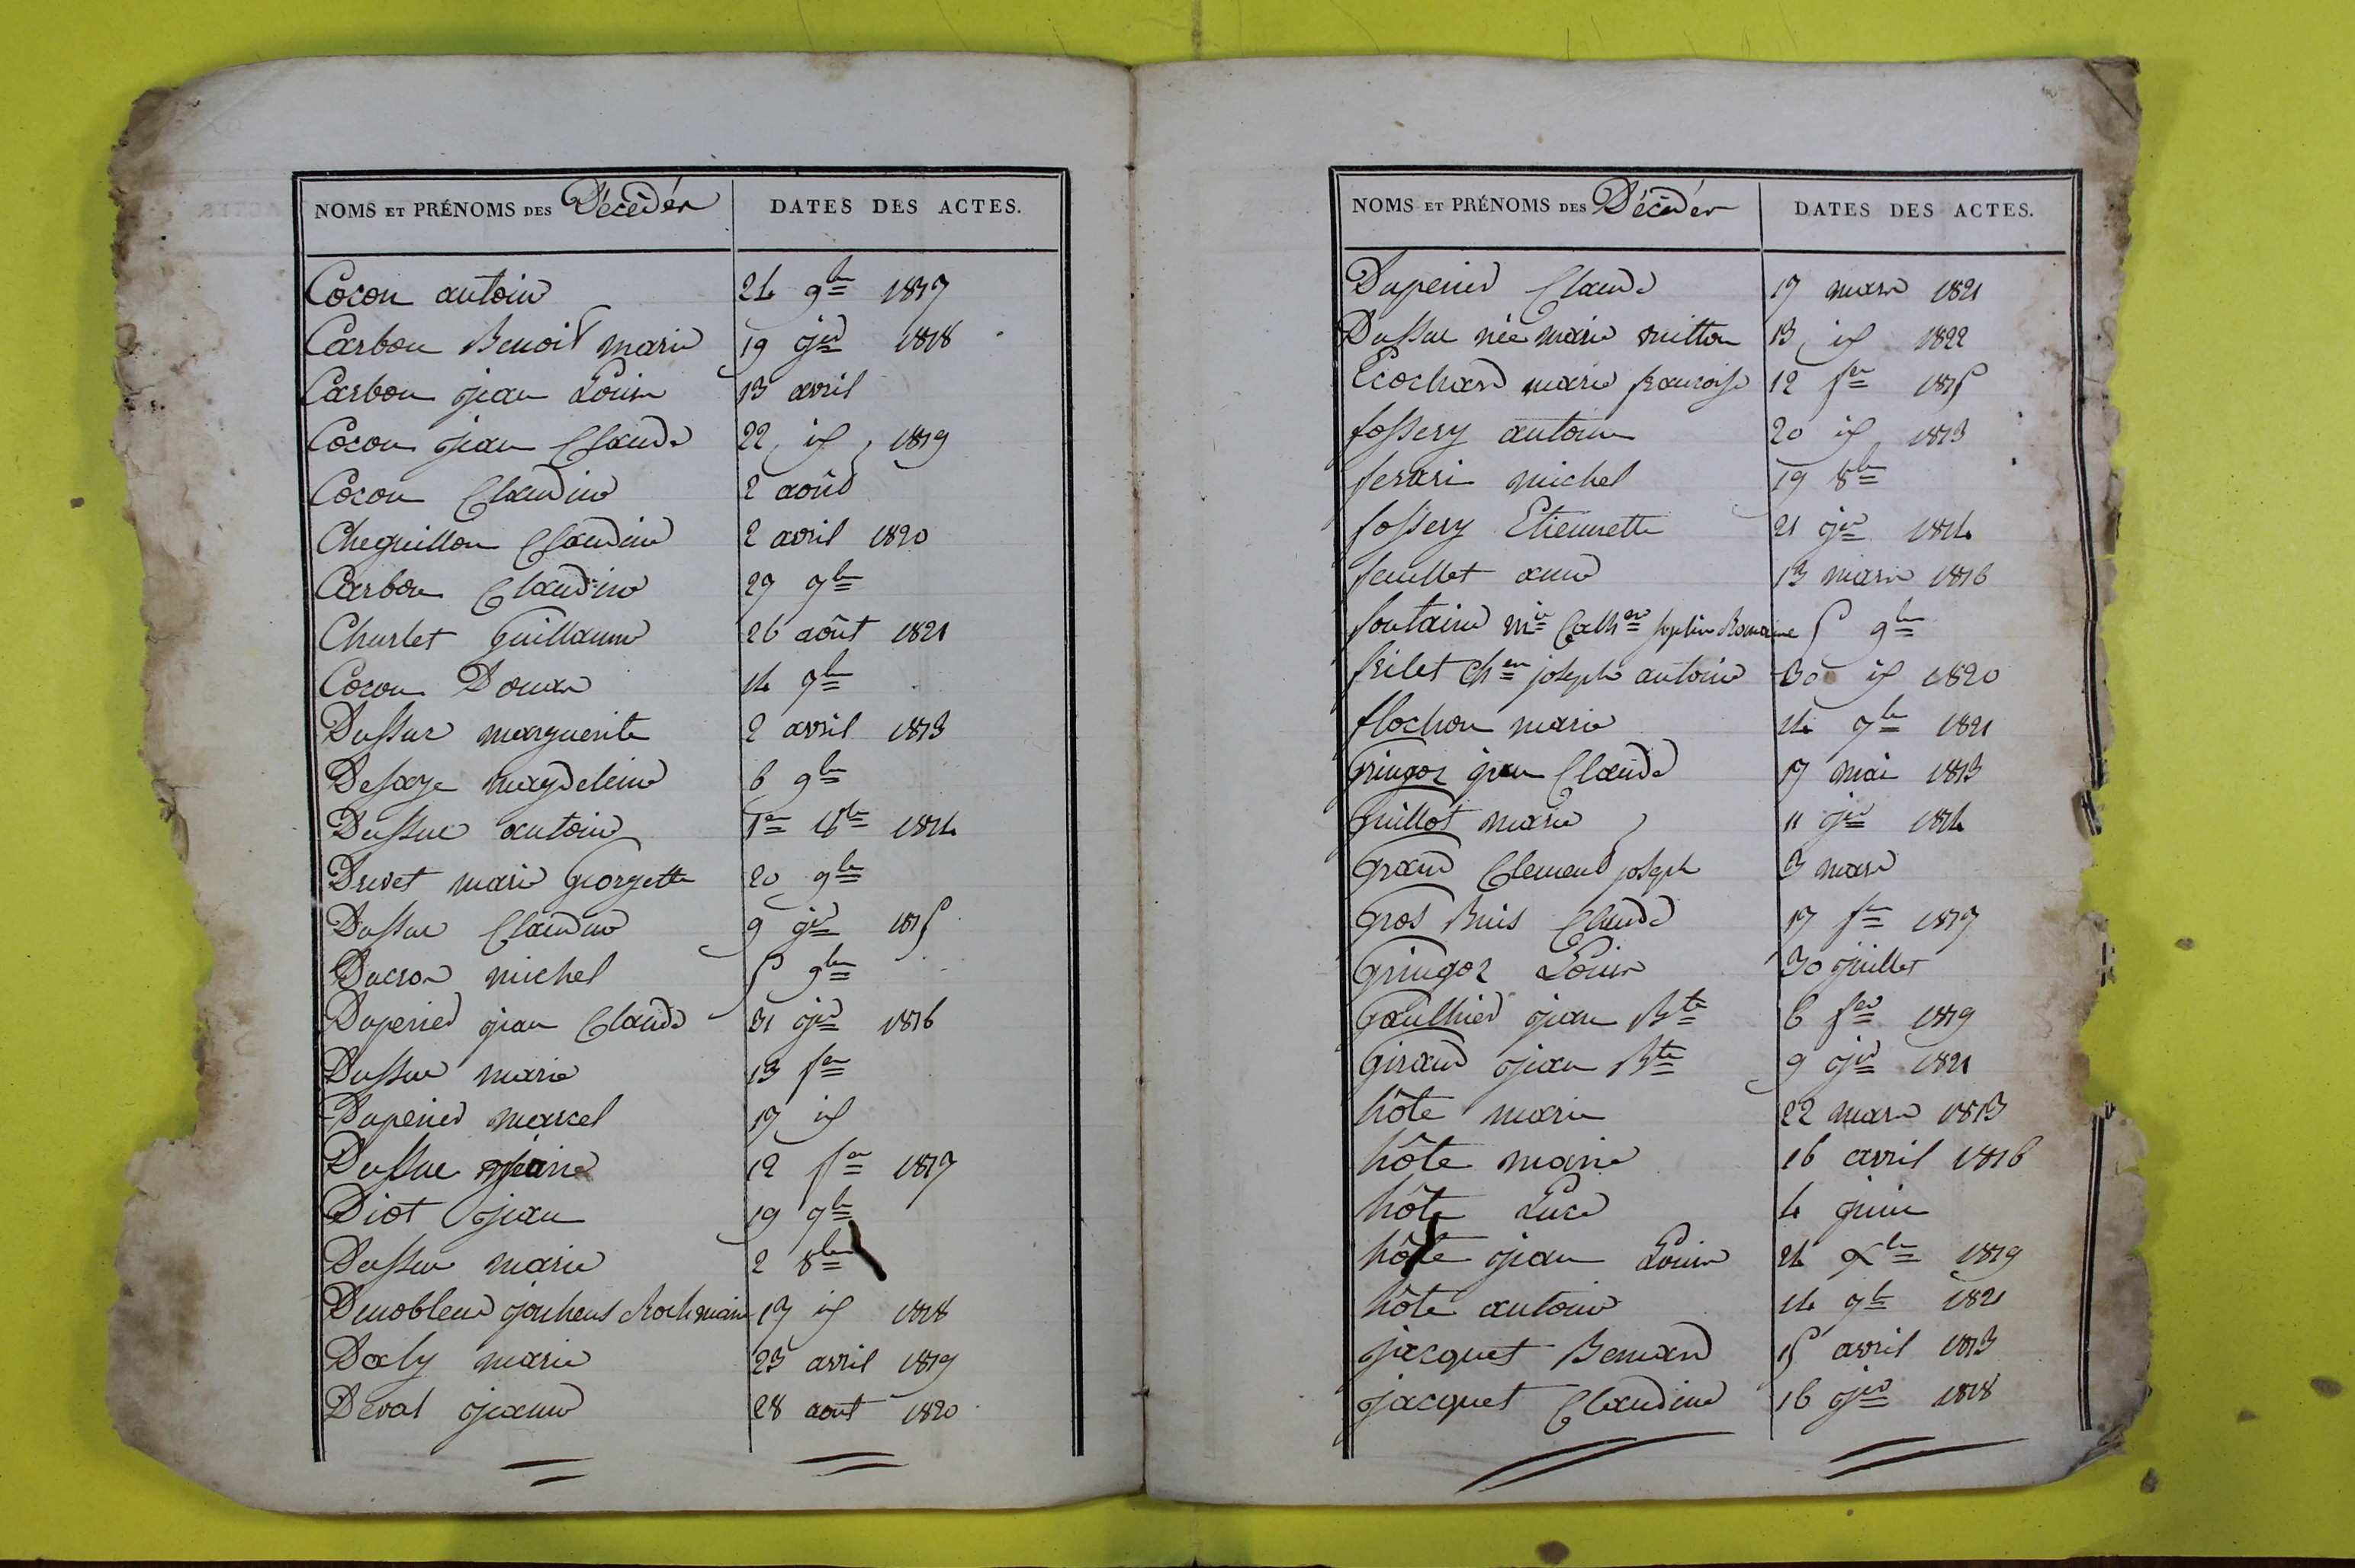 NOMS ET PRÉNOMS DES Décèdés DATES DES ACTES.
Cocon antoine 24 9bre 1817
Carbon Benoit marie 19 jer 1818
Carbon jean Louis 13 avril
Cocon jean Claude 22 id 1819
Cocon Claudine 2 août
Cheguillon Claudine 2 avril 1820
Carbon Claudine 29 7bre
Charlet Guillaume 26 août 1821
Cocon 14 7bre
Dussuc marguerite 2 avril 1813
Desaye magdeleine 6 9bre
Dussuc antoine 1er 1814
Drevet marie Georgette 20 9bre
Dussuc Claudine 9 jer 1815
Ducron michel 5 9bre
Duperier jean Claude 31 jer 1816
Dussuc marie 13 fer
Duperier marcel 17 id
Dussuc 12 fer 1817
Diot jean 19 7bre
Dussuc marie 2 8bre
17 id 1818
Daly marie 23 avril 1819
Deval jeanne 28 aout 1820
NOMS ET PRÉNOMS DES Décédés DATES DES ACTES.
Duperier Claude 17 mars 1821
Dussuc née marie mitton 13 id 1822
Ecochard marie francoise 12 fer 1815
fossery antoine 20 id 1813
ferari michel 19 8bre
fossery Etiennette 21 jer 1814
feuillet anne 13 mars 1816
fontaine mie Cathne Romaine 5 9bre
frilet chen joseph antoine 30 id 1820
flochon marie 14 7bre 1821
Gringoz jean Claude 17 mai 1813
Guillot marie 11 jer 1814
Grand Clement joseph 3 mars
Gros Buis Claude 17 fer 1817
Gringoz Louis 30 juillet
Gaulhier jean Bte 6 fer 1819
Giraud jean Bte 9 jer 1821
hôte marie 22 mars 1813
hôte marie 16 avril 1816
hôte Luce 4 juin
hôte jean Louis 24 Xbre 1819
hôte antoine 14 7bre 1821
jacquet Bernard 15 avril 1813
jacquet Claudine 16 jer 1818